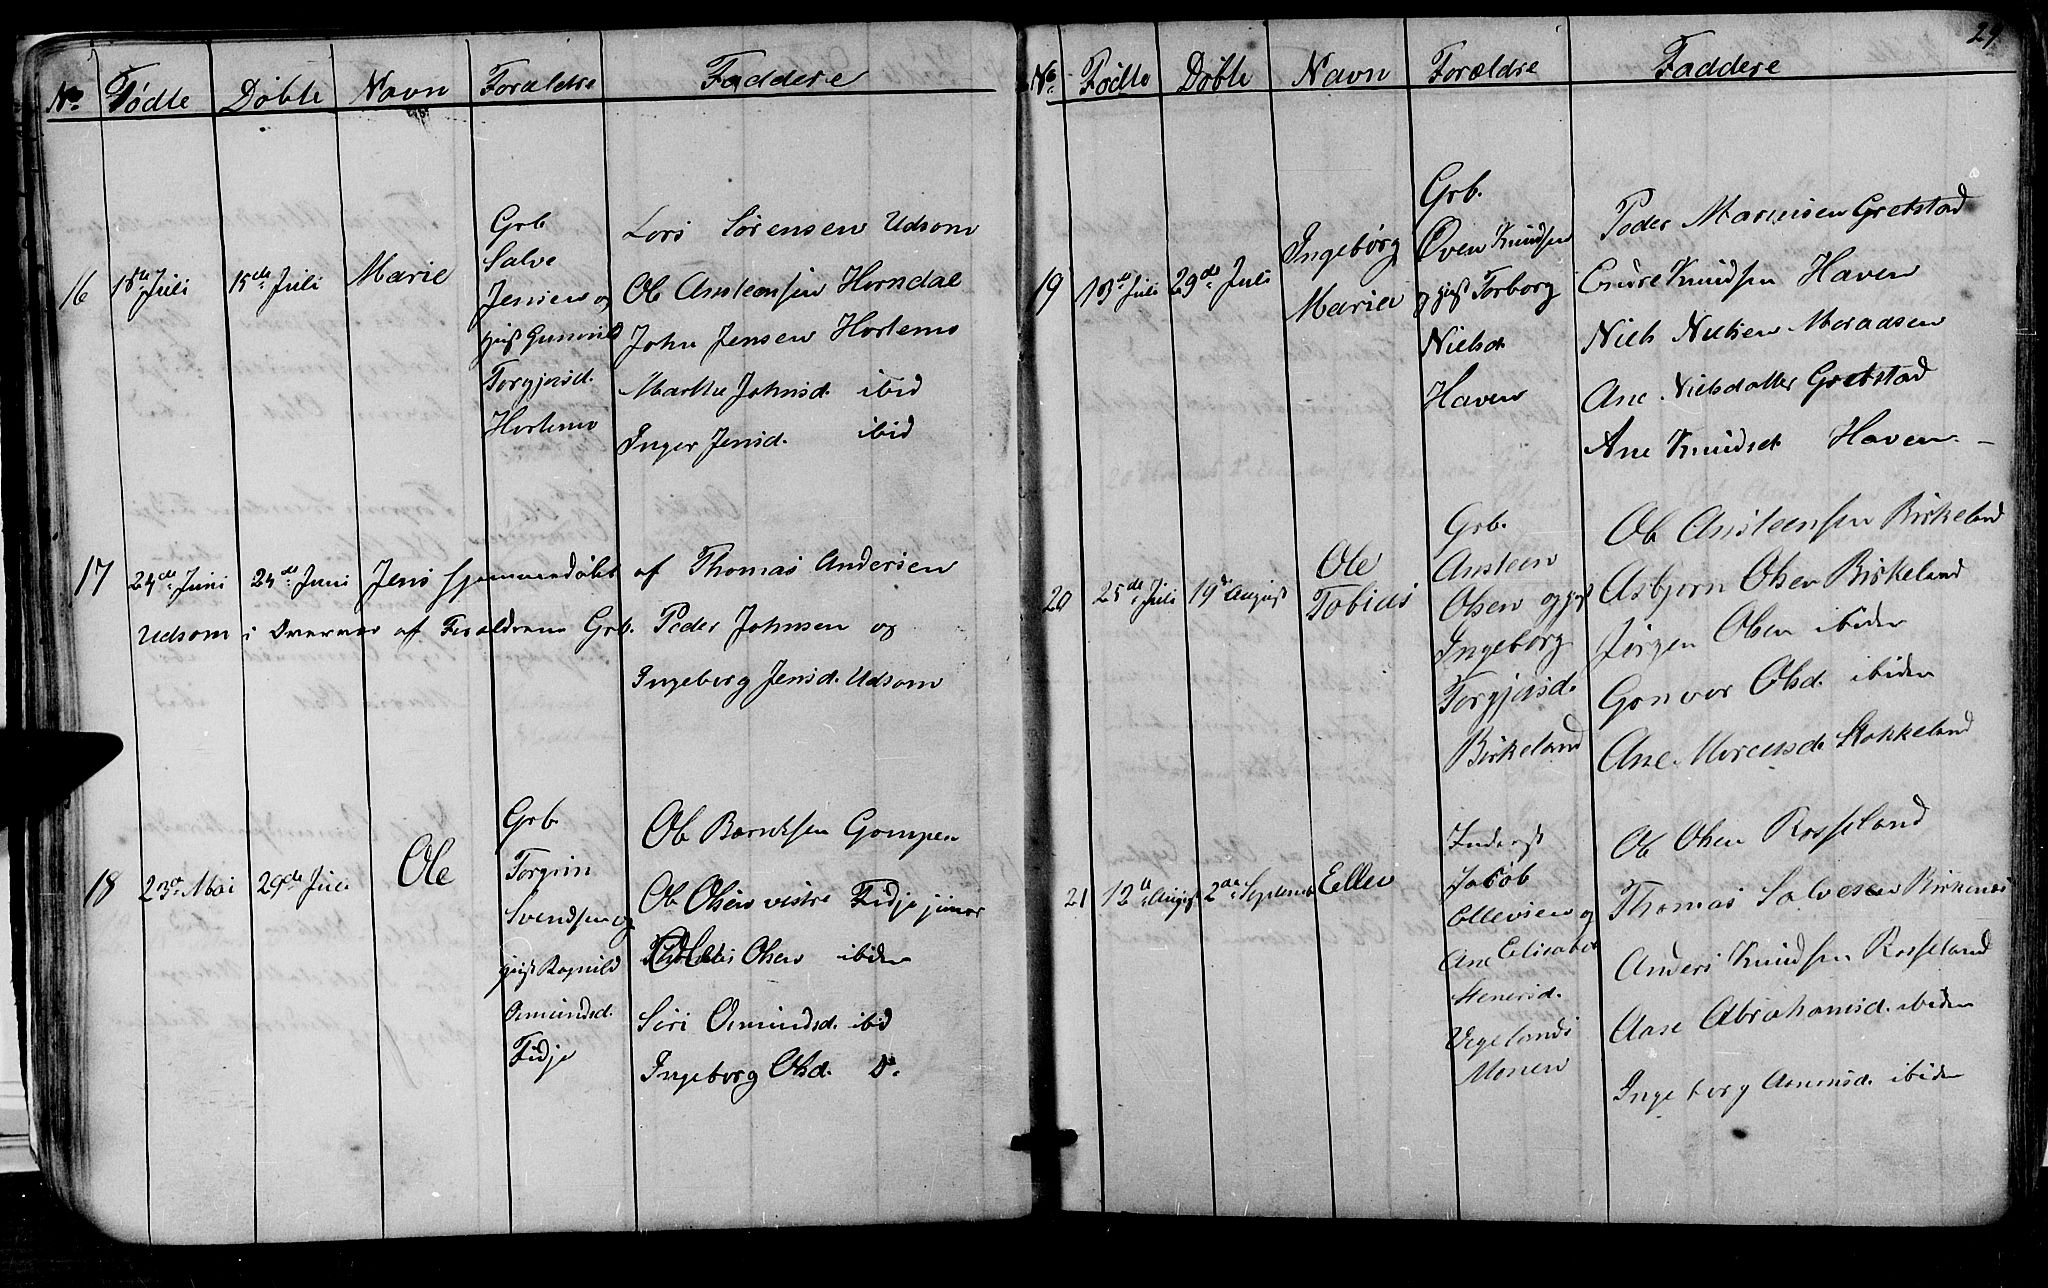 No. Fødte Døbte Navn Forældre Faddere
16 1ste Juli 15de Juli Marie
Grb
Salve
Jensen og
Gunvild
Torgjusd.
Hortemo
Lars Sørensen Udsom
Ole Ansteensen Horndal
John Jensen Hortemo
Marthe Johnsd. ibid
Inger Jensd. ibid
17 24de Juni 24de Juni Jens hjemmedøbt af Thomas Andersen
Udsom i Overvær af Forældrene Grb. Peder Johnsen og
Ingeborg Jensd. Udsom
18 23de Mai 29de Juli Ole
Grb
Torgrim
Svendsen og
Ragnild
Osmundsd.
Fidje
Ole Berntsen Gompen
Ole Olsen vestre Fidje junior
Olsen ibiden
Siri Osmundsd. ibid
Ingeborg Olsd. D.
29
No. Fødte Døbte Navn Forældre Faddere
19 13de Juli 29de Juli Ingeborg
Maria
Grb.
Øven Knudsen
og Torborg
Nielsd
Haven
Peder Grebstad
Knudsen Haven
Niels Nielsen Moraasen
Ane Nielsdatter Grebstad
Ane Knudsd Haven
20 25de Juli 19de August Ole
Tobias
Grb.
Ansteen
Olsen og
Ingeborg
Torgjusd.
Birkeland
Ole Ansteensen Birkeland
Asbjørn Olsen Birkeland
Jørgen Olsen ibiden
Gonvor Olsd. ibiden
Ane Stokkeland
21 12te August 2den September Ellev
Inderst
Jacob
Ellevsen og
Ane Elisabet
Stenersd.
Vegelands
Monen
Ole Olsen Rosseland
Thomas Salvesen Birkenes
Anders Knudsen Rosseland
Aase Abrahamsd. ibiden
Ingeborg ibiden